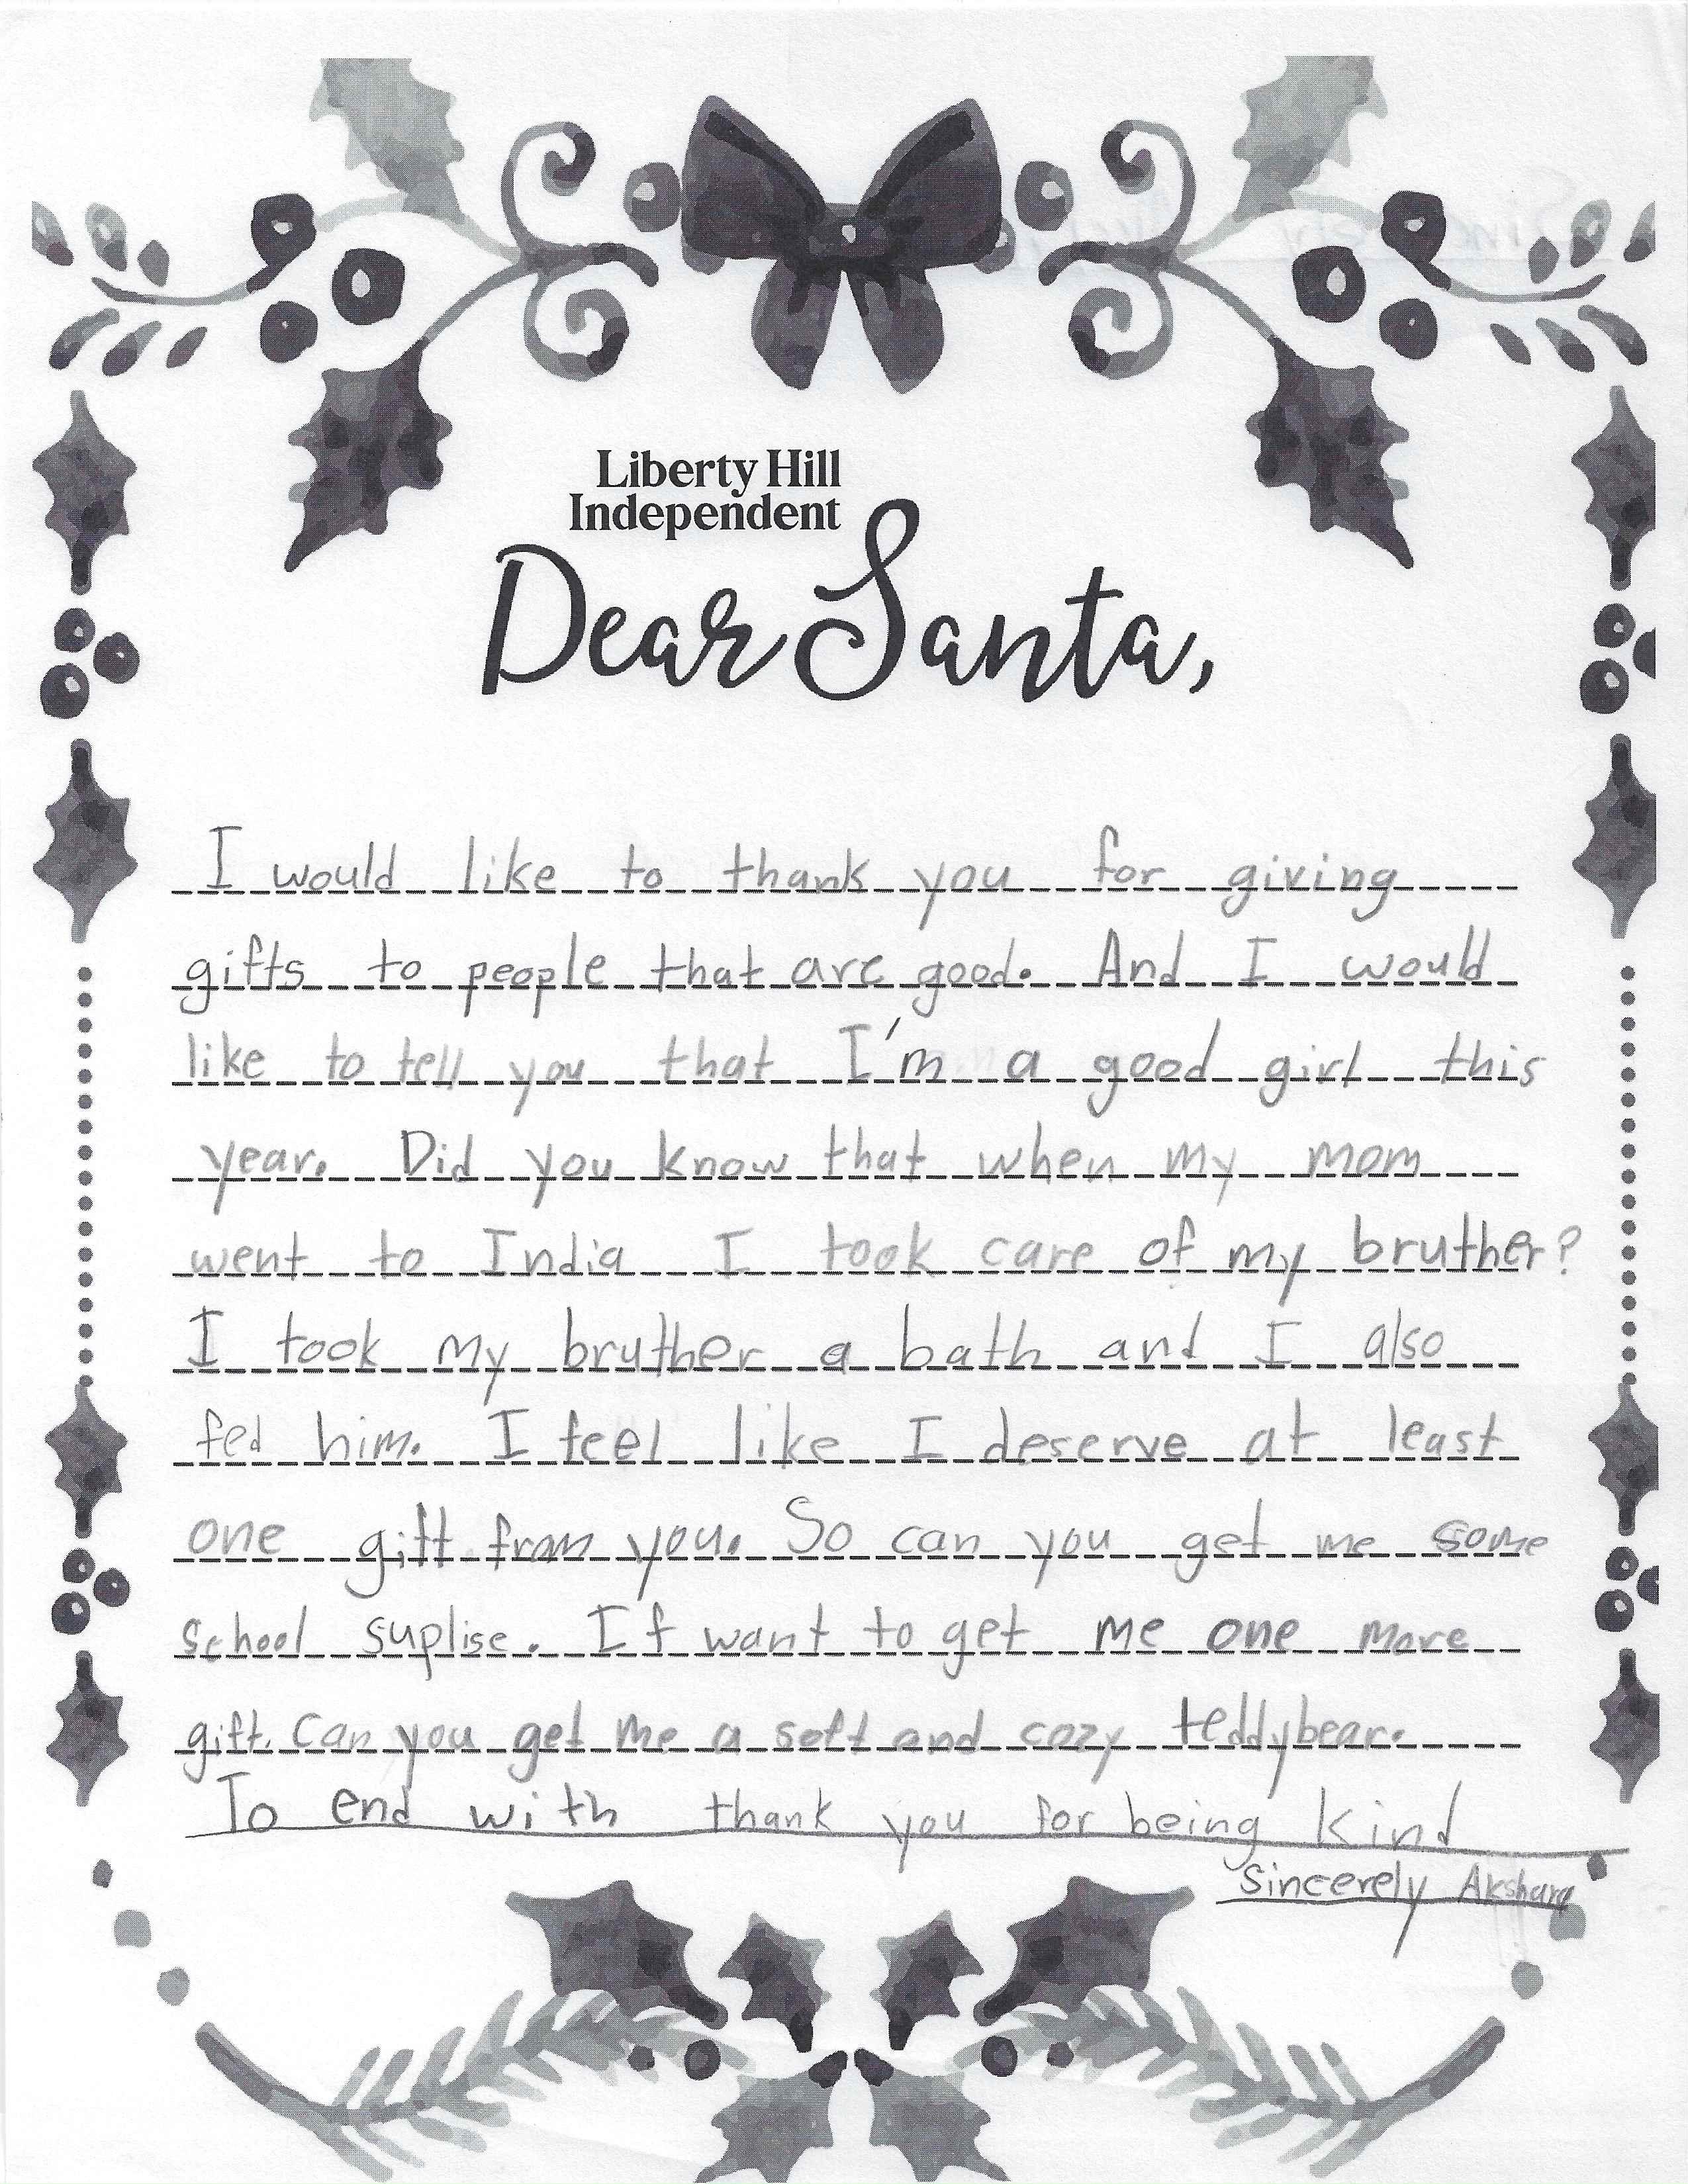 Liberty Hill
Independent
Dear Santa,
I would like to thank you for giving
gifts to people that are good. And I would
like to tell you that I'm a good girl this
year. Did you know that when my mom
went to India I took care of my bruther?
I took my bruther a bath and I also
fed him. I feel like I deserve at least
one gift from you. So can you get me some
school suplise. If want to get me one more
gift. Can you get me a soft and cozy teddybear.
To end with thank you for being kind
Sincerely Akshara